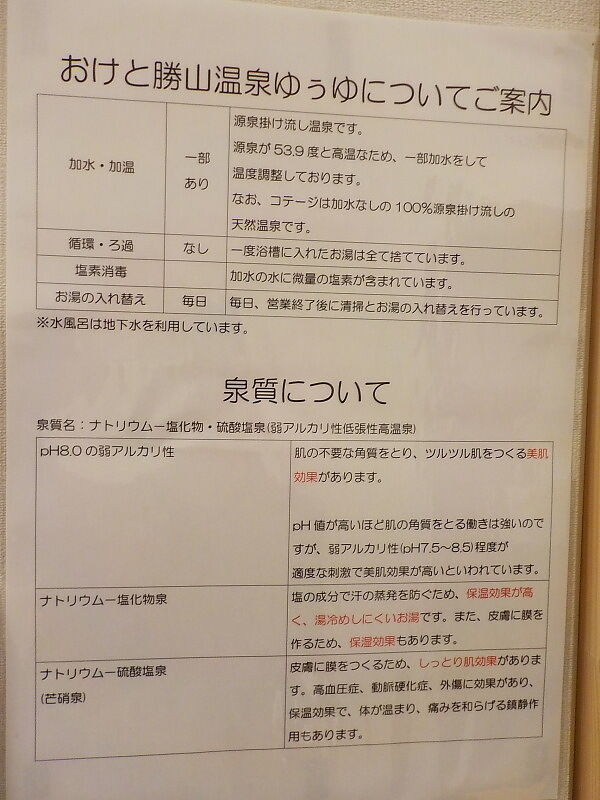 おけと勝山温泉ゆぅゆについてご案内
加水・加温
一部
あり
源泉掛け流し温泉です。
源泉が53.9度と高温なため、一部加水をして
温度調整しております。
なお、コテージは加水なしの100%源泉掛け流しの
天然温泉です。
循環・ろ過
なし
一度浴槽に入れたお湯は全て捨てています。
塩素消毒
加水の水に微量の塩素が含まれています。
お湯の入れ替え
毎日
毎日、営業終了後に清掃とお湯の入れ替えを行っています。
※水風呂は地下水を利用しています。
泉質について
泉質名：ナトリウムー塩化物・硫酸塩泉(弱アルカリ性低張性高温泉)
pH8.0の弱アルカリ性
肌の不要な角質をとり、ツルツル肌をつくる美肌
効果があります。
pH値が高いほど肌の角質をとる働きは強いので
すが、弱アルカリ性(pH7.5～8.5)程度が
適度な刺激で美肌効果が高いといわれています。
ナトリウムー塩化物泉
塩の成分で汗の蒸発を防ぐため、保温効果が高
く、湯冷めしにくいお湯です。また、皮膚に膜を
作るため、保湿効果もあります。
ナトリウムー硫酸塩泉
(芒硝泉)
皮膚に膜をつくるため、しっとり肌効果がありま
す。高血圧症、動脈硬化症、外傷に効果があり、
保温効果で、体が温まり、痛みを和らげる鎮静作
用もあります。